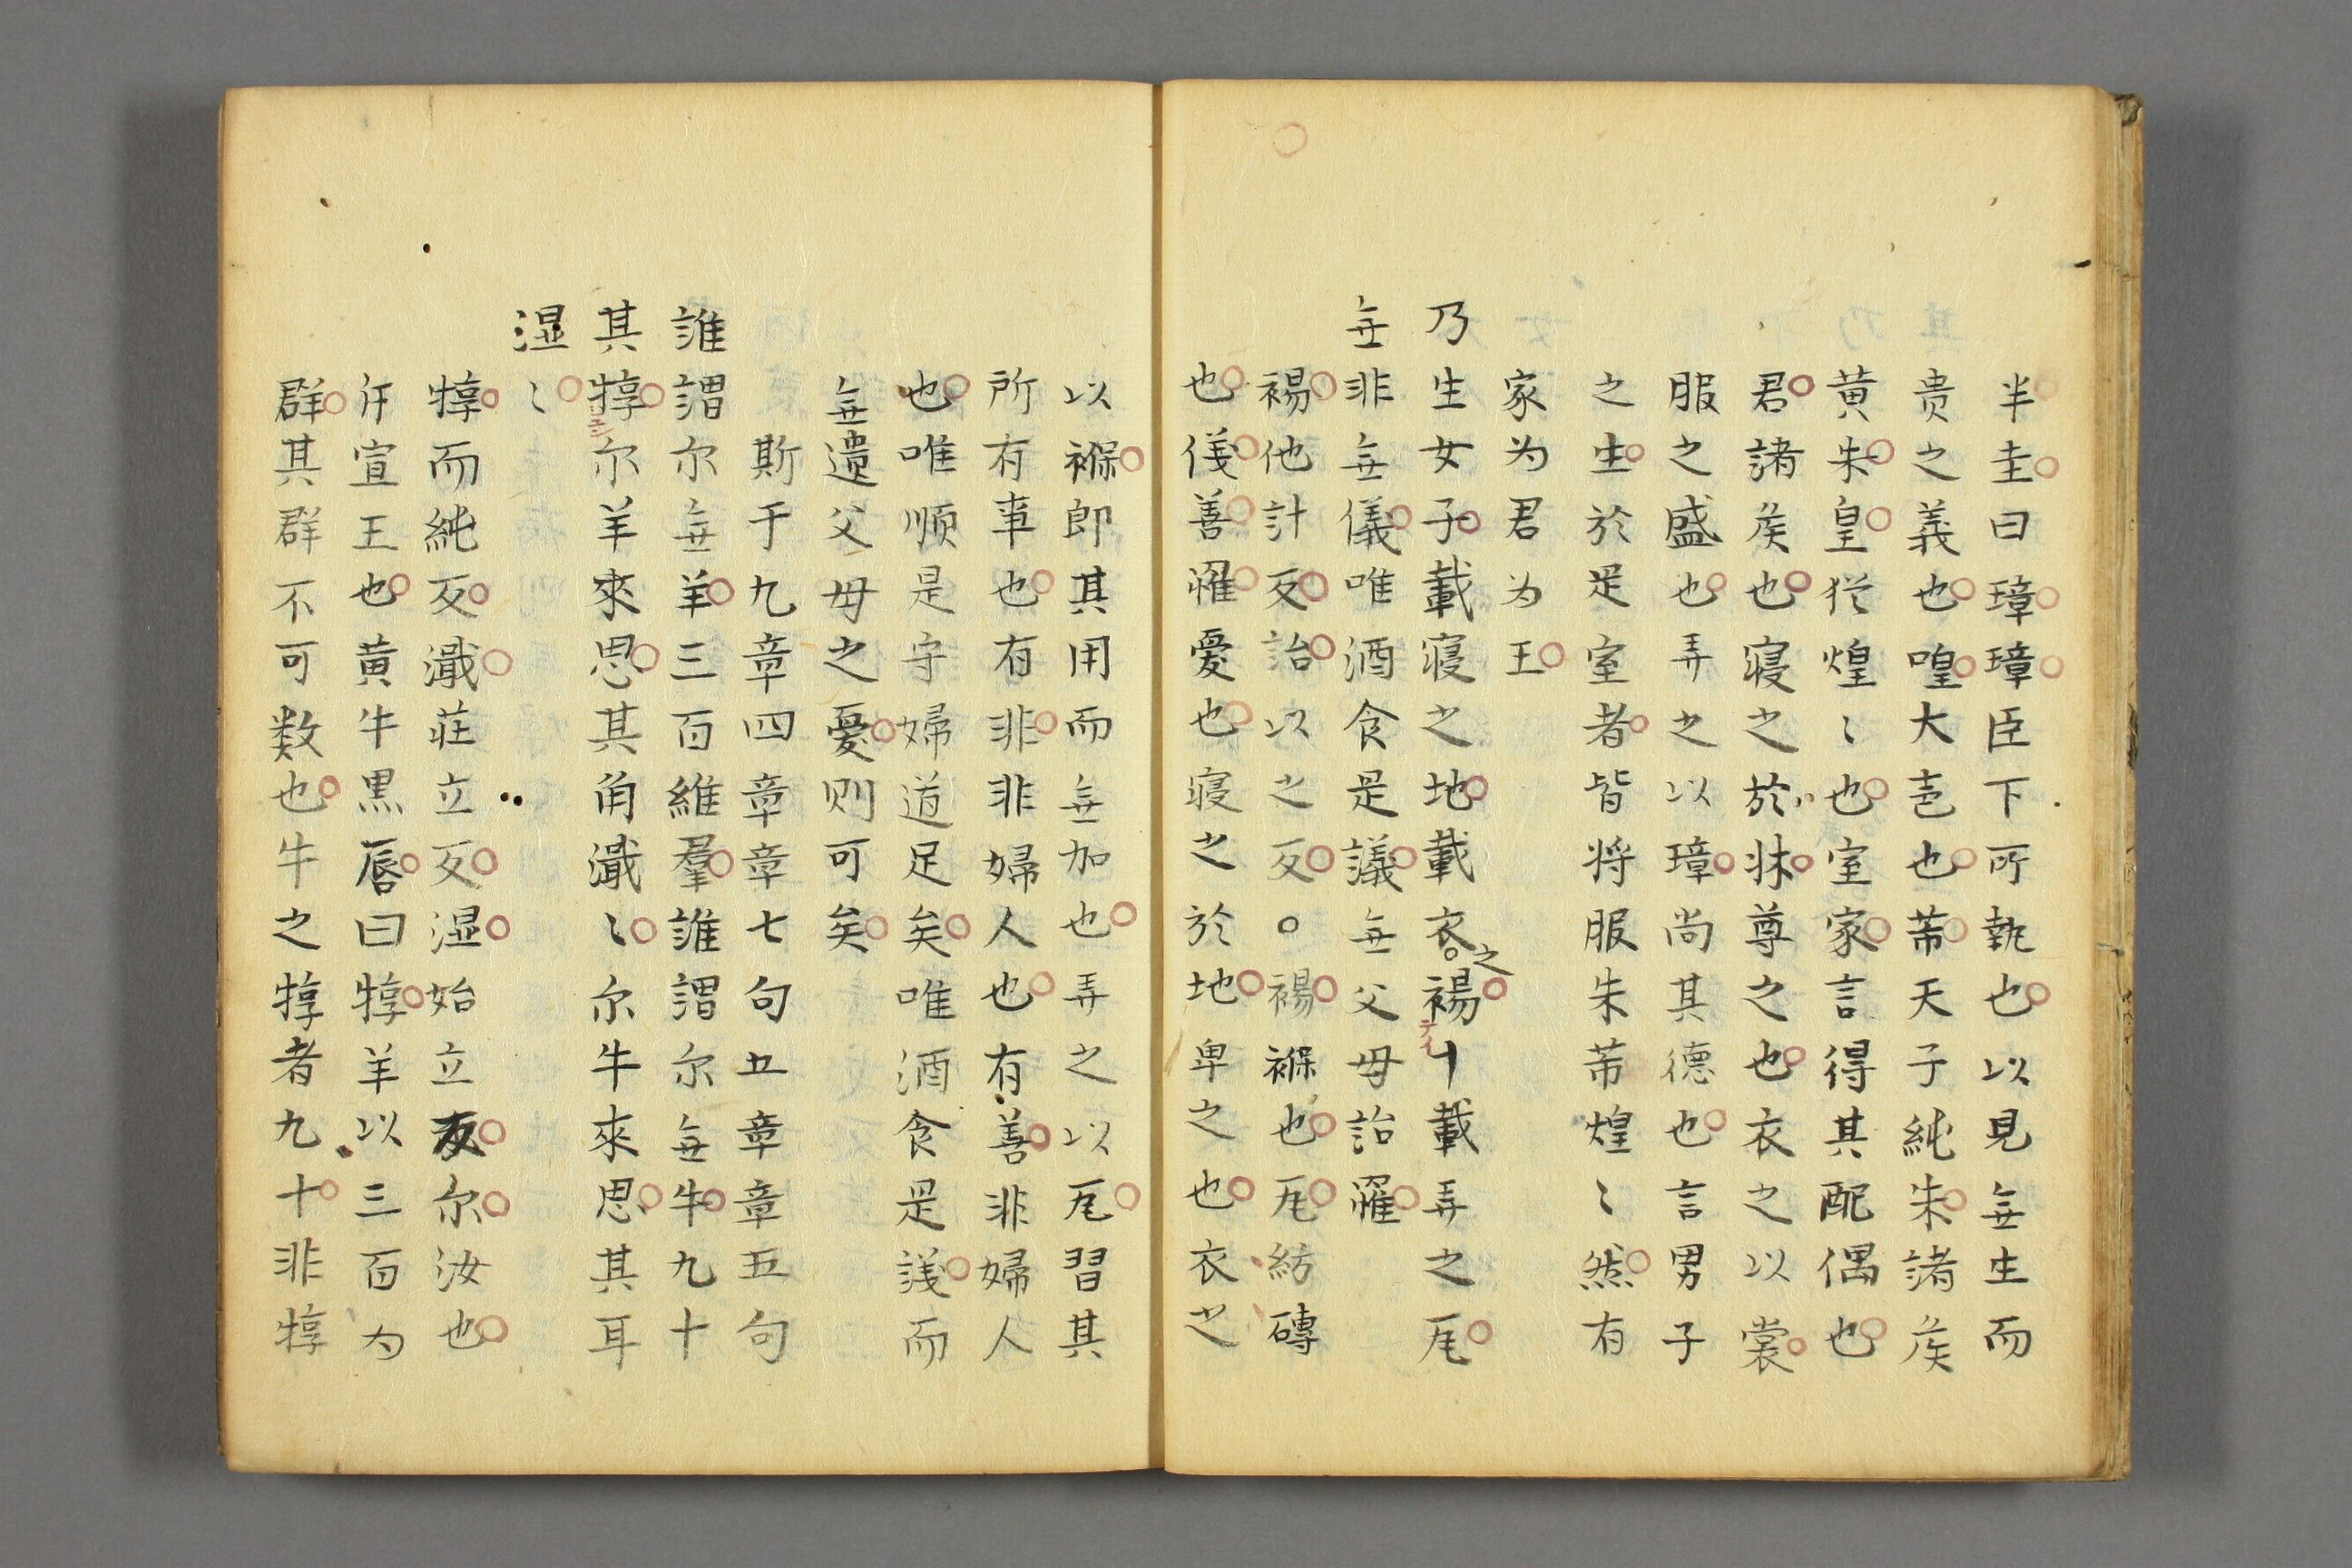 半圭曰璋璋臣下所執也以見無生而
贵之義也喤大声也芾天子純朱諸侯
黄朱皇犹煌〻也室家言得其配偶也
君諸侯也寝之於牀尊之也衣之以裳
服之盛也弄之以璋尚其德也言男子
之生於是室者皆将服朱芾煌〻然有
家为君为王
乃生女子載寝之地載衣之裼テイ載弄之瓦
無非無儀唯酒食是議無父母詒罹
裼他計反詒以之反○裼褓也瓦紡磚
也儀善罹憂也寝之於地卑之也衣之
以褓即其用而無加也弄之以瓦習其
所有事也有非非婦人也有善非婦人
也唯順是守婦道足矣唯酒食是議而
無遺父母之憂则可矣
斯于九章四章章七句五章章五句
誰謂尔無羊三百維羣誰謂尔無牛九十
其犉尔羊來思其角濈〻尔牛來思其耳
湿〻
犉而純反濈荘立反湿始立反尔汝也
仵宣王也黄牛黒唇曰犉羊以三百为
群其群不可数也牛之犉者九十非犉